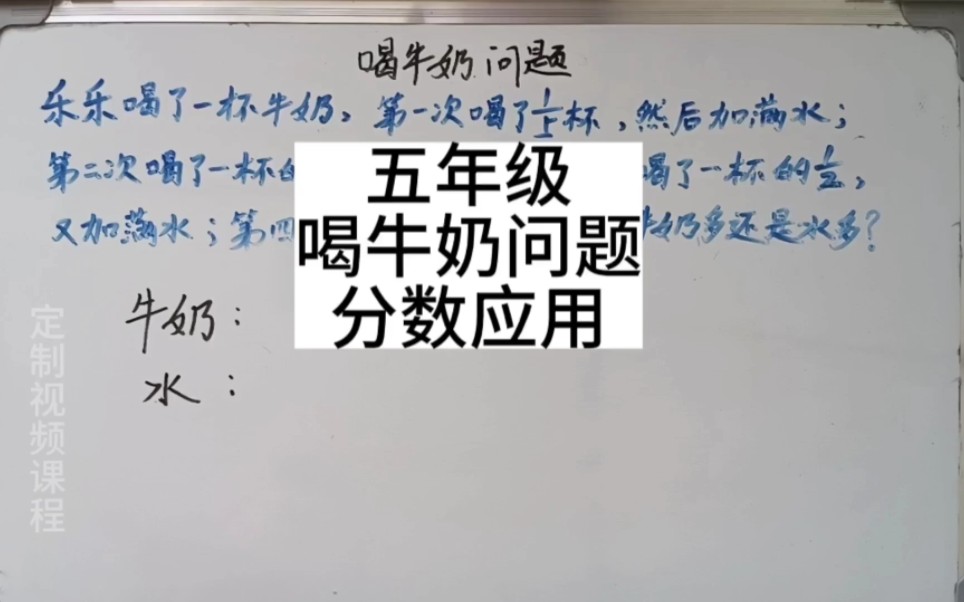 喝牛奶问题
乐乐喝了一杯牛奶，第一次喝了杯，然后加满水；
第二次喝了一杯的 喝了一杯的，
又加满水；第四 牛奶多还是水多？
五年级
喝牛奶问题
分数应用
牛奶：
水：
定制视频课程